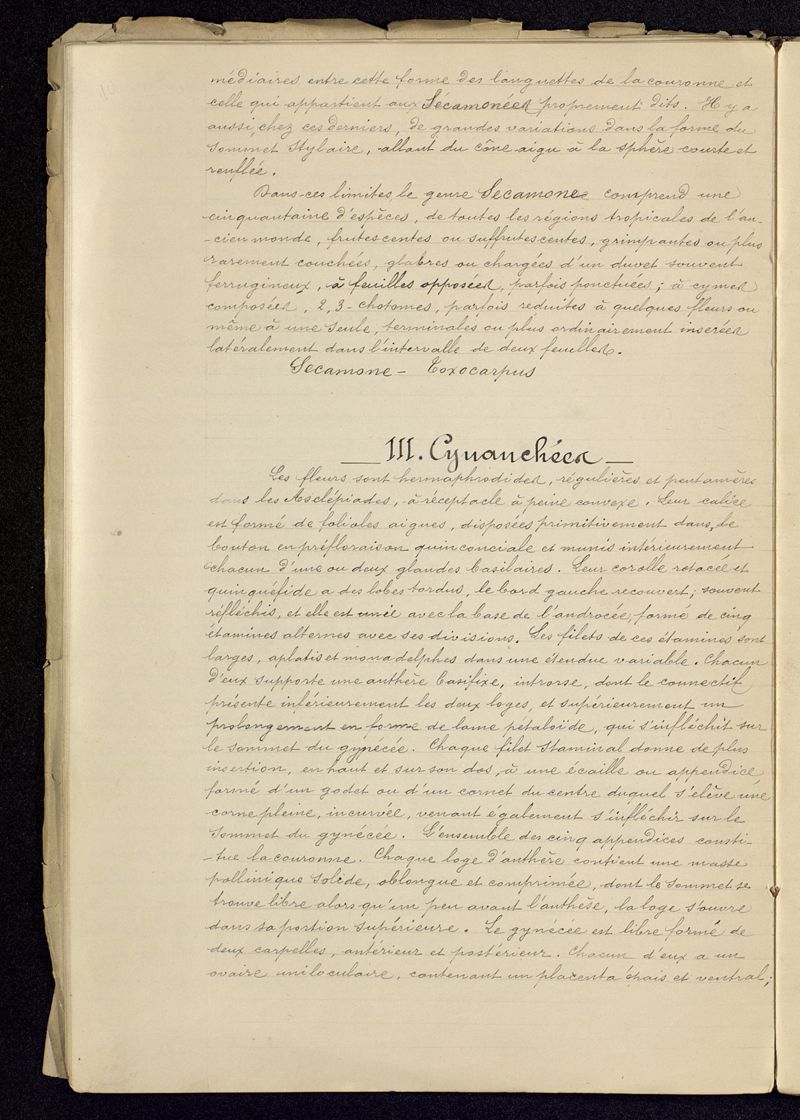 médiaires entre cette forme des languettes de la couronne et
celle qui appartient aux Sécamonées proprement dits. Il y a
aussi, chez ces derniers, de grandes variations dans la forme du
sommet stylaire, allant du cône aigu à la sphère courte et
renflée.
Dans ces limites le genre Secamone comprend une
cinquantaine d'espèces, de toutes les régions tropicales de l'an-
-cien monde, frutescentes ou suffrutescentes, grimpantes ou plus
rarement couchées, glabres ou chargées d'un duvet souvent
ferrugineux, à feuilles opposées, parfois ponctuées; à cymes
composées, 2,3-chotomes, parfois reduites à quelques fleurs ou
même à une seule, terminales ou plus ordinairement inserées
latéralement dans l'intervalle de deux feuilles.
Secamone - Toxocarpus
III. Cynanchées
Les fleurs sont hermaphrodides, régulières et pentamères
dans les Asclépiades, à réceptacle à peine convexe. Leur calice
est formé de folioles aigues, disposées primitivement dans le
bouton en préfloraison quinconciale et munis intérieurement
chacun d'une ou deux glandes basilaires. Leur corolle rotacée et
quinquéfide a des lobes tordus, le bord gauche recouvert; souvent
réfléchis, et elle est unie avec la base de l'androcée, formé de cinq
étamines alternes avec ses divisions. Les filets de ces étamines sont
larges, aplatis et monadelphes dans une étendue variable. Chacun
d'eux supporte une anthère basifixe, introrse, dont le connectif
présente intérieurement les deux loges, et supérieurement un
prolongement en forme de lame pétaloïde, qui s'infléchit sur
le sommet du gynécée. Chaque filet staminal donne de plus
insertion, en haut et sur son dos, à une écaille ou appendice
formé d'un godet ou d'un cornet du centre duquel s'élève une
corne pleine, incurvée, venant également s'infléchir sur le
sommet du gynécée. L'ensemble des cinq appendices consti-
-tue la couronne. Chaque loge d'anthère contient une masse
pollinique solide, oblongue et comprimée, dont le sommet se
trouve libre alors qu'un peu avant l'anthèse, la loge s'ouvre
dans sa portion supérieure. Le gynécée est libre formé de
deux carpelles, antérieur et postérieur. Chacun d'eux a un
ovaire uniloculaire, contenant un placenta épais et ventral;